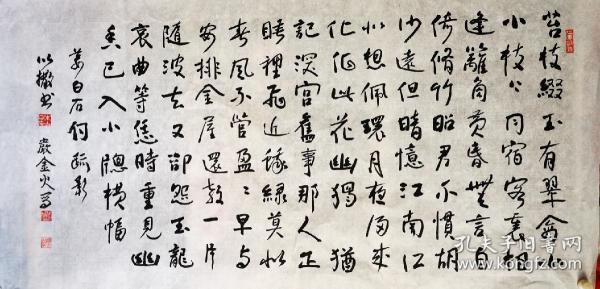 苔枝綴玉有翠禽小
小枝上同宿客裏相
逢籬角黄昏無言自
倚脩竹昭君不慣胡
沙遠但暗憶江南江
北想佩環月夜歸來
化作此花幽獨猶
記深宮舊事那人正
睡裡飛近蛾綠莫似
春風不管盈〻早与
安排金屋還教一片
隨波去又卻怨玉龍
哀曲等恁時重見幽
香已入小牕橫幅
姜白石詞疏影
以撒书
嚴金火写
孔夫子旧书网